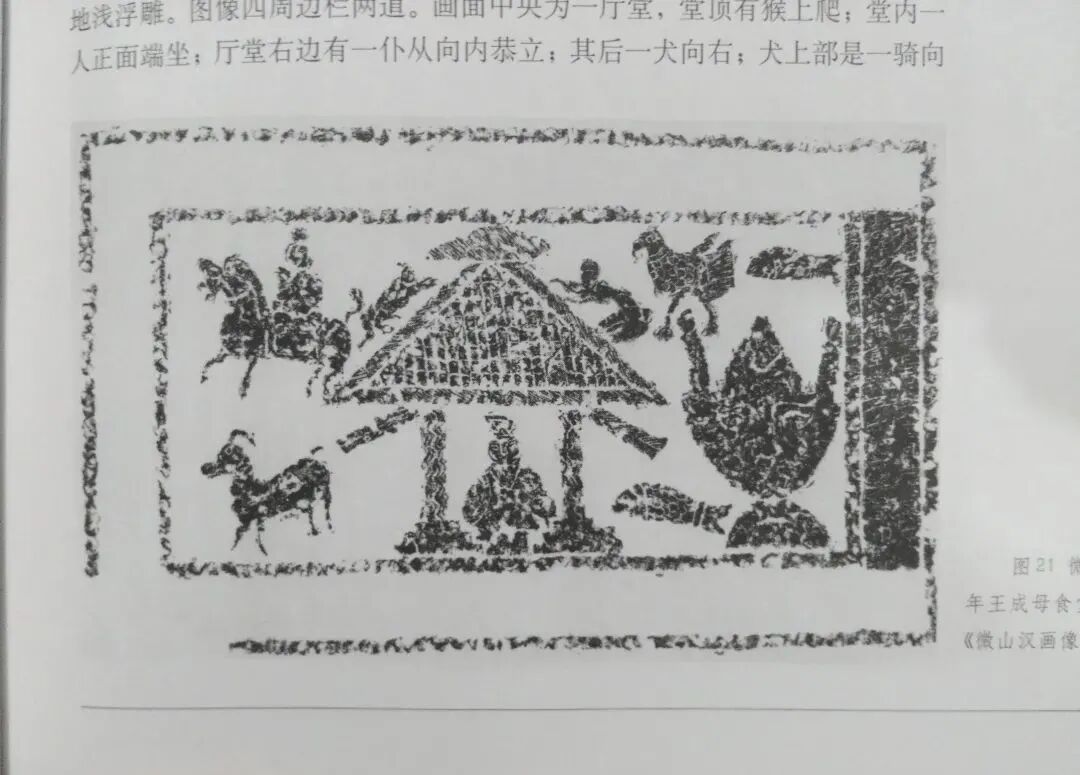 地浅浮雕。图像四周边栏两道。画面中央为一厅堂，堂顶有猴上爬；堂内一
人正面端坐；厅堂右边有一仆从向内恭立；其后一犬向右；犬上部是一骑向
图21 微
年王成母食
《微山汉画像